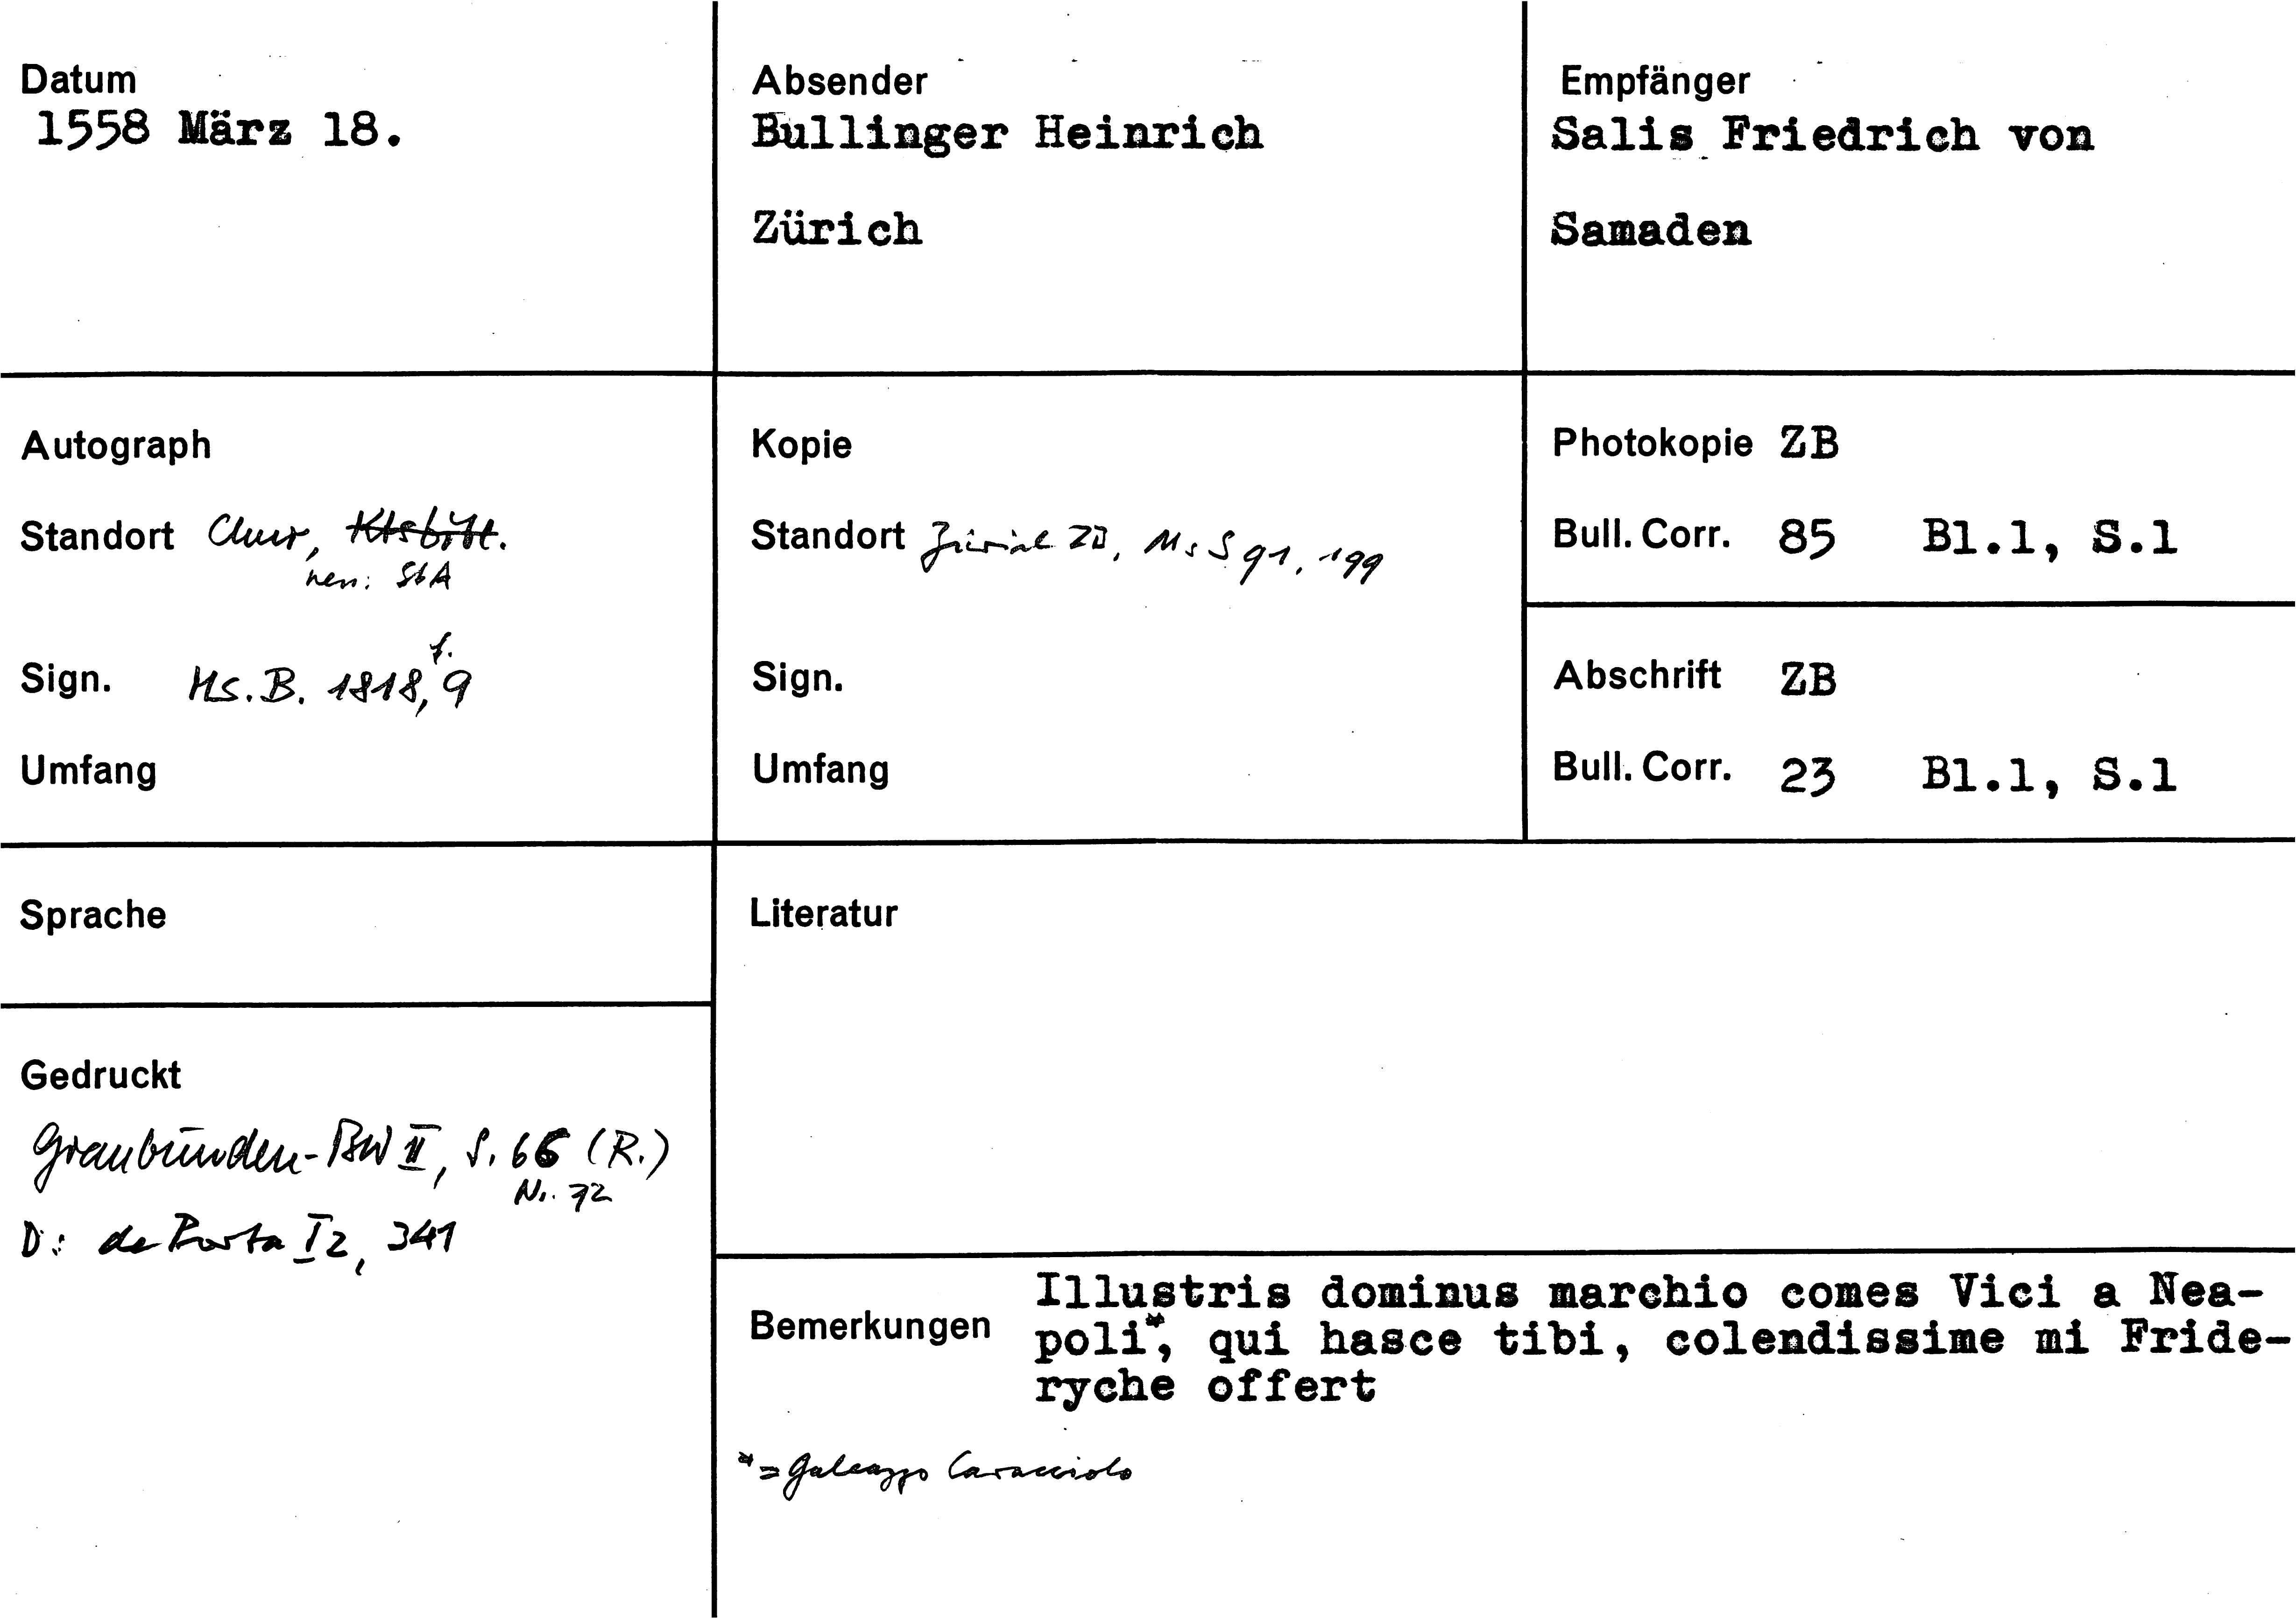 Datum
1558 März 18.
Absender
Bullinger Heinrich
Zürich
Empfänger
Salis Friedrich von
Samaden
Autograph
Standort Chur, Ktsbibl.
neu: StA
Sign. Ms. B. 1818, f. 9
Umfang
Kopie
Standort Zürich ZB, Ms S 91, 199
Sign.
Umfang
Photokopie ZB
Bull. Corr. 85 Bl.1, S.1
Abschrift ZB
Bull. Corr. 23 Bl.1, S.1
Sprache
Gedruckt
Graubünden-BW II, S. 66 (R.)
Nr. 72
D: de Porta I 2, 341
Literatur
Bemerkungen
Illustris dominus marchio comes Vici a Nea-
poli*, qui hasce tibi, colendissime mi Fride-
ryche offert
* = Galeazzo Caracciolo